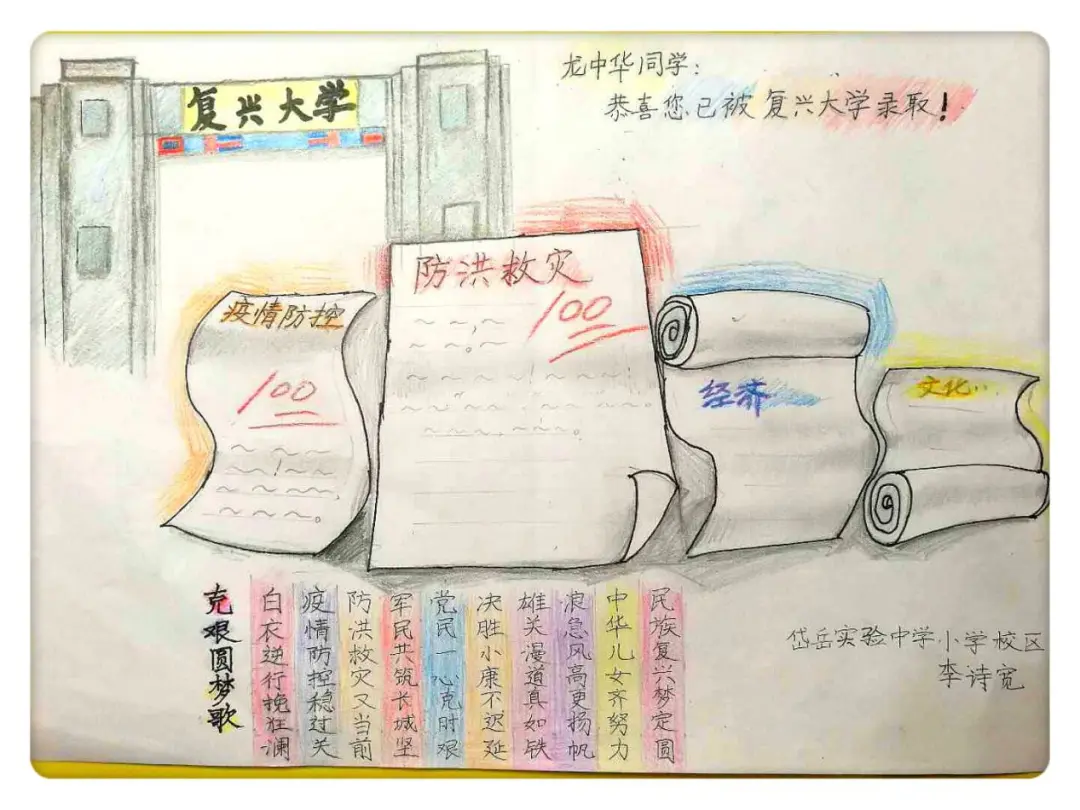 复兴大学
龙中华同学:
恭喜您已被复兴大学录取!
疫情防控
100
防洪救灾
100
经济
文化..
克艰圆梦歌
白衣逆行挽狂澜
疫情防控稳过关
防洪救灾又当前
军民共筑长城坚
党民一心克时艰
决胜小康不迟延
雄关漫道真如铁
浪急风高更扬帆
中华儿女齐努力
民族复兴梦定圆
岱岳实验中学小学校区
李诗宽